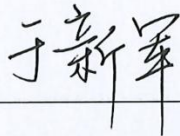 于新军